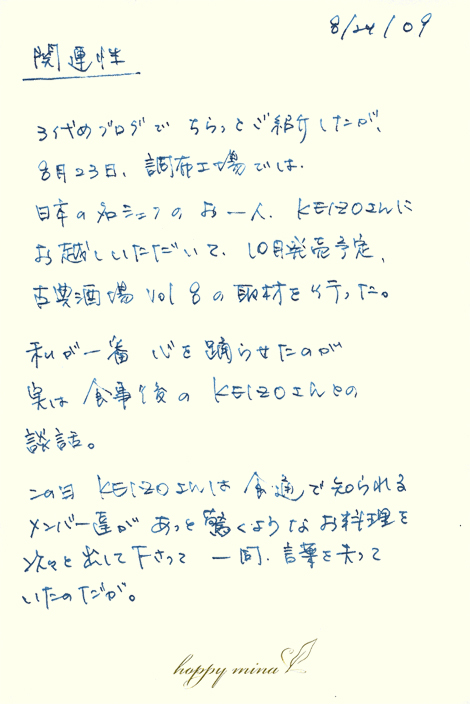 8/24/09
関連性
3代めブログで ちらっとご紹介したが、
8月23日、調布工場では、
日本の名シェフのお一人、KEIZOさんに
お越しいただいて、10月発売予定、
古典酒場 vol 8 の取材を行った。
私が一番 心を踊らせたのが
実は 食事後の KEIZOさんとの
談話。
この日 KEIZOさんは 食通で知られる
メンバー達が あっと驚くような お料理を
次々と出して下さって 一同、言葉を失って
いたのだが。
happy mina